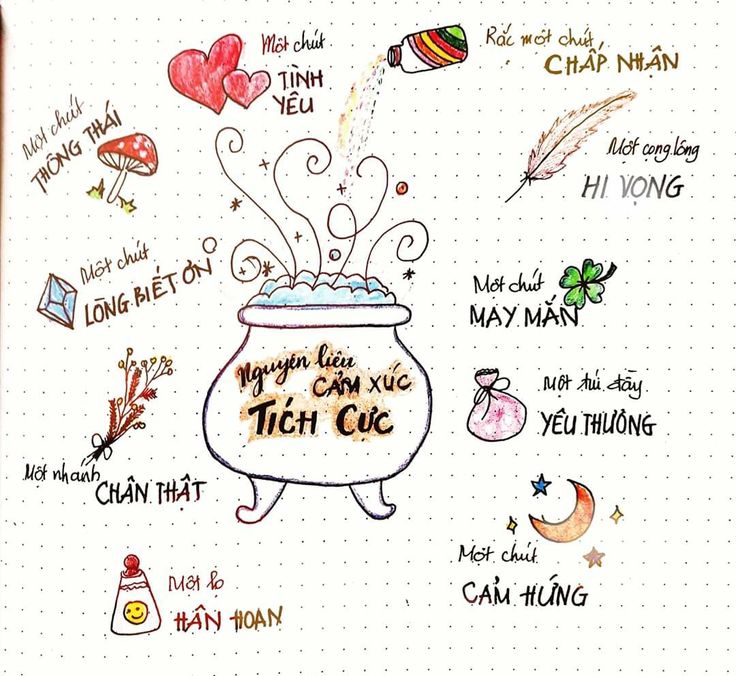 Một chút
TÌNH
YÊU
Rắc một chút
CHẤP NHẬN
Một chút
THÔNG THÁI
Một cọng lông
HI VỌNG
Một chút
LÒNG BIẾT ƠN
Một chút
MAY MẮN
Nguyên liệu
CẢM XÚC
TÍCH CỰC
Một túi đầy
YÊU THƯƠNG
Một nhánh
CHÂN THẬT
Một chút
CẢM HỨNG
Một lọ
HÂN HOAN